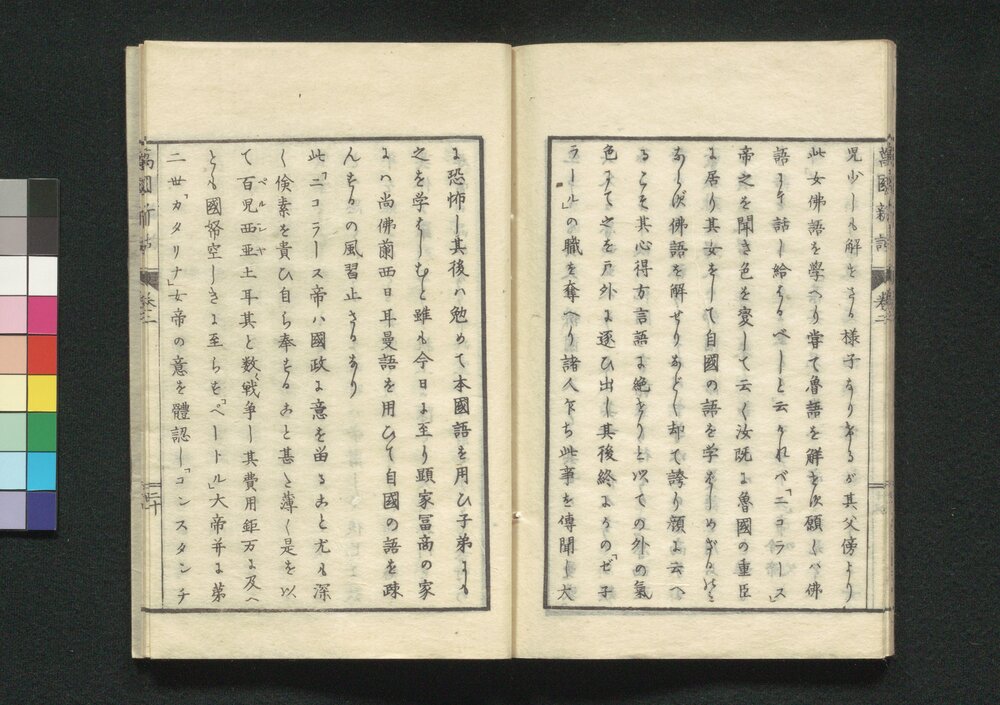 萬國新話 卷二
児少しも解せざる様子なりけるが其父傍より
此女佛語を学へり嘗て魯語を解せ次願くハ佛
語にて話し給はるべしと云けれべ「ニコラース」
帝之を聞き色を変して云く汝既に魯國の重臣
に居り其女をして自國の語を学ばしめざる
あらず佛語を解せりなどゝ却て誇り顔に云へ
るこそ其心得方言語に絶せりと以ての外の氣
色にて之を戸外に逐ひ出し其後終にかの「ゼ子
ラール」の職を奪へり諸人乍ち此事を傳聞し大
に恐怖し其後ハ勉めて本國語を用ひ子弟にも
之を学ばしむと雖も今日に至り顕家冨商の家
にハ尚佛蘭西日耳曼語を用ひて自國の語を疎
んずるの風習止さるなり
此「ニコラース帝ハ國政に意を留ること尤も深
く倹素を貴ひ自ら奉ずること甚と薄く是を以
て百児西亜土耳其と数〻戦争し其費用鉅万に及へ
ペルシヤ
とも國帑空しきに至らも「ペートル」大帝并に弟
二世「カタリナ」女帝の意を體認し「コンスタンチ
萬國新話 卷二 二十